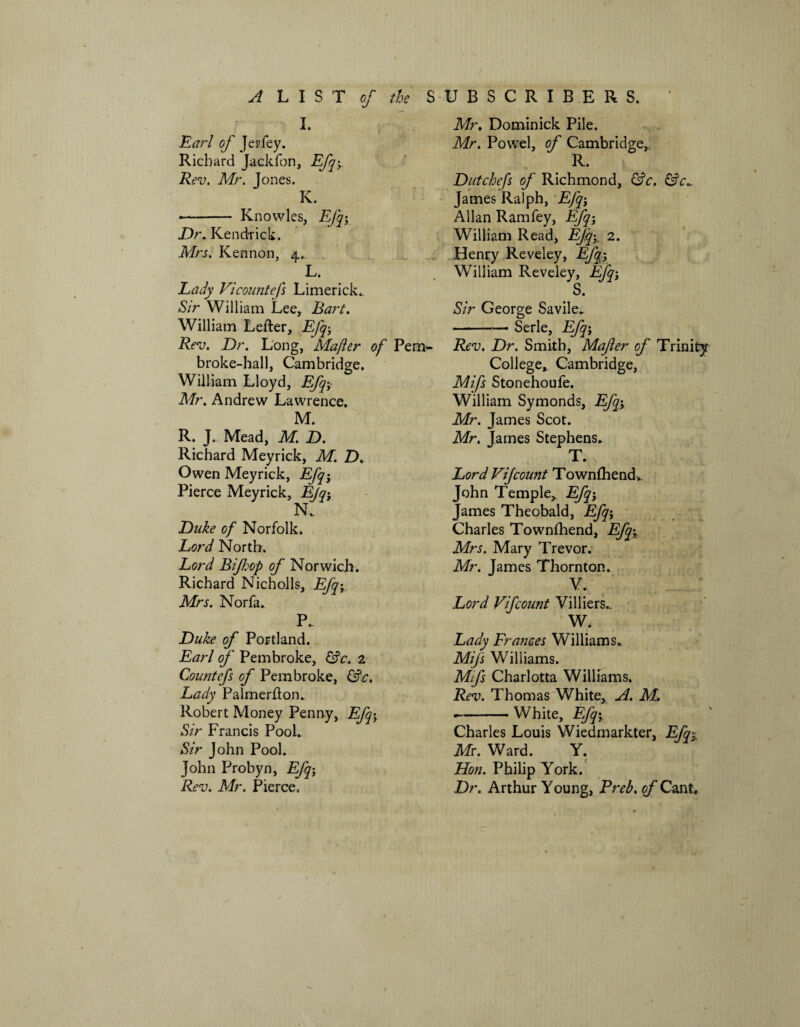 A LIST of the SUBSCRIBERS.
I.
Earl of Jerſey.
Richard Jackſon, Eſq;
Rev. Mr. Jones.
K.
—— Knowles, Eſq;
Dr. Kendrick.
Mrs. Kennon, 4.
L.
Lady Vicounteſs Limerick.
Sir William Lee, Bart.
William Leſter, Eſq;
Rev. Dr. Long, Maſter of Pem-
broke-hall, Cambridge.
William Lloyd, Eſq;
Mr. Andrew Lawrence.
M.
R. J. Mead, M. D.
Richard Meyrick, M. D.
Owen Meyrick, Eſq;
Pierce Meyrick, Eſq;
N.
Duke of Norfolk.
Lord North.
Lord Biſhop of Norwich.
Richard Nicholls, Eſq;
Mrs. Norſa.
P.
Duke of Portland.
Earl of Pembroke, &c. 2
Counteſs of Pembroke, &c.
Lady Palmerſton.
Robert Money Penny, Eſq;
Sir Francis Pool.
Sir John Pool.
John Probyn, Eſq;
Rev. Mr. Pierce.
Mr. Dominick Pile.
Mr. Powel, of Cambridge,
R.
Dutcheſs of Richmond, &c. &c.
James Ralph, Eſq;
Allan Ramſey, Eſq;
William Read, Eſq; 2.
Henry Reveley, Eſq;
William Reveley, Eſq;
S.
Sir George Savile.
—— Serle, Eſq;
Rev. Dr. Smith, Maſter of Trinity
College, Cambridge,
Miſs Stonehouſe.
William Symonds, Eſq;
Mr. James Scot.
Mr. James Stephens.
T.
Lord Viſcount Townſhend.
John Temple, Eſq;
James Theobald, Eſq;
Charles Townſhend, Eſq;
Mrs. Mary Trevor.
Mr. James Thornton.
V.
Lord Viſcount Villiers.
W.
Lady Frances Williams.
Miſs Williams.
Miſs Charlotta Williams.
Rev. Thomas White, A. M.
—— White, Eſq;
Charles Louis Wiedmarkter, Eſq;
Mr. Ward. Y.
Hon. Philip York.
Dr. Arthur Young, Preb. of Cant.